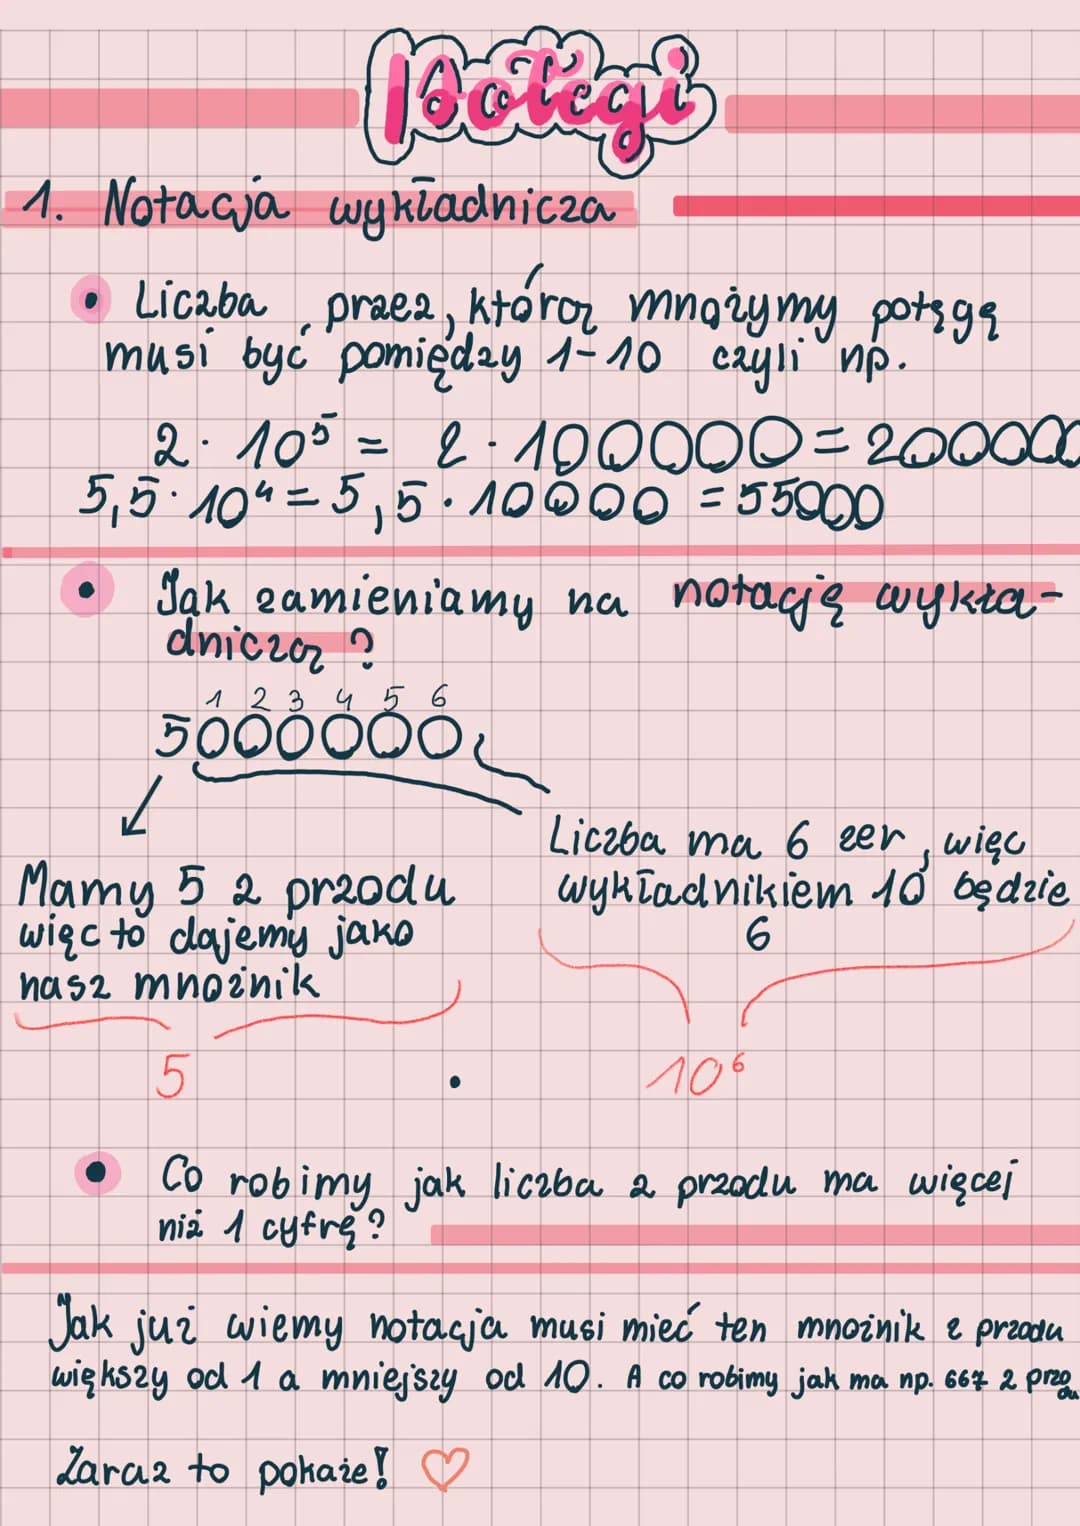 Potęgi
1. Notacja wykładnicza
• Liczba przez, którą mnożymy potęgę
musi być pomiędzy 1-10 czyli np.
2 · 10⁵ = 2 · 100000 = 200000
5,5 · 10⁴ = 5,5 · 10000 = 55000
• Jak zamieniamy na notację wykła-
dniczą?
1 2 3 4 5 6
5000000
Liczba ma 6 zer, więc
wykładnikiem 10 będzie
6
Mamy 5 z przodu
więc to dajemy jako
nasz mnożnik
5 · 10⁶
• Co robimy jak liczba z przodu ma więcej
niż 1 cyfrę?
Jak już wiemy notacja musi mieć ten mnożnik z przodu
większy od 1 a mniejszy od 10. A co robimy jak ma np. 667 z przo
du
Zaraz to pokaże! ♡